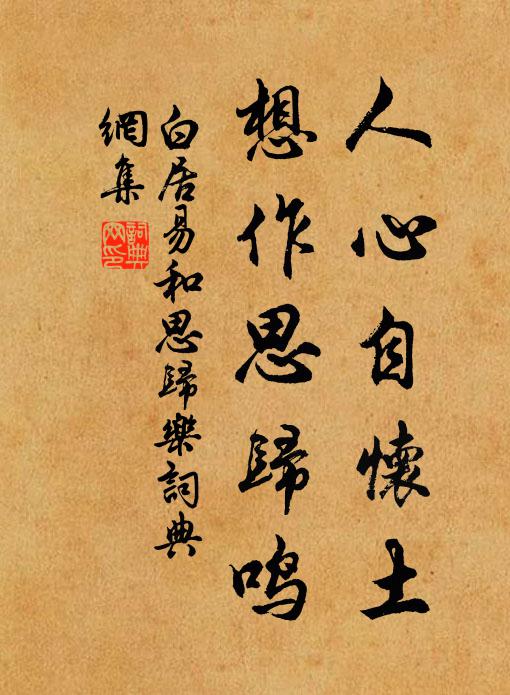 人心自懷土
想作思歸鳴
白居易和思歸樂詞典
網集
詞典
网印